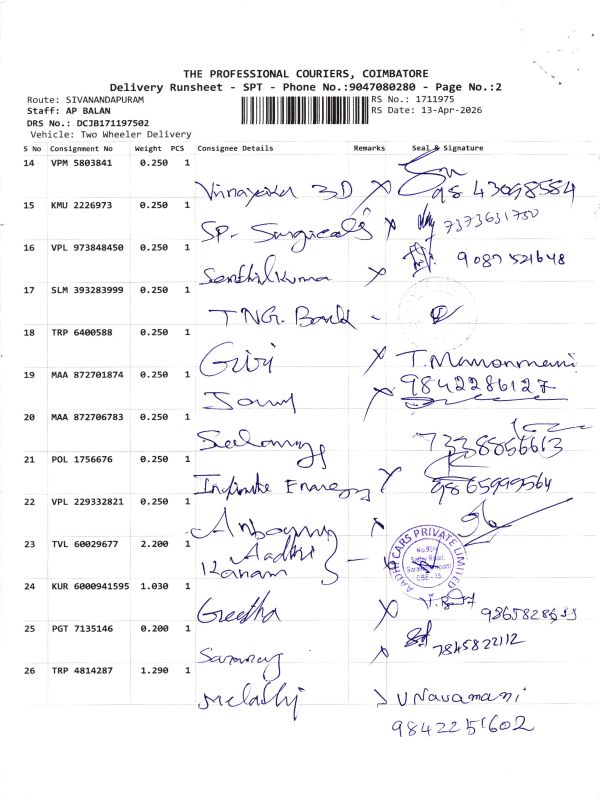 THE PROFESSIONAL COURIERS, COIMBATORE
Delivery Runsheet - SPT - Phone No.:9047080280 - Page No.:2
Route: SIVANANDAPURAM RS No.: 1711975
Staff: AP BALAN RS Date: 13-Apr-2026
DRS No.: DCJB171197502
Vehicle: Two Wheeler Delivery
S No Consignment No Weight PCS Consignee Details Remarks Seal & Signature
14 VPM 5803841 0.250 1
Vinnayaka 3D X 98 43098584
15 KMU 2226973 0.250 1
SP. Surgicals X 7373631750
16 VPL 973848450 0.250 1
Senthilkuma X 9087521648
17 SLM 393283999 0.250 1
TNG. Bank -
18 TRP 6400588 0.250 1
Giri X T. Manonmani
9842286127
19 MAA 872701874 0.250 1
X
20 MAA 872706783 0.250 1
7338056613
21 POL 1756676 0.250 1
Infinite Energy X 9865999564
22 VPL 229332821 0.250 1
X
23 TVL 60029677 2.200 1
Aadhi
Kanam
AADHI CARS PRIVATE LIMITED
CBE - 35
24 KUR 6000941595 1.030 1
Geetha X
25 PGT 7135146 0.200 1
X 7845822112
26 TRP 4814287 1.290 1
V Navamani
9842251602